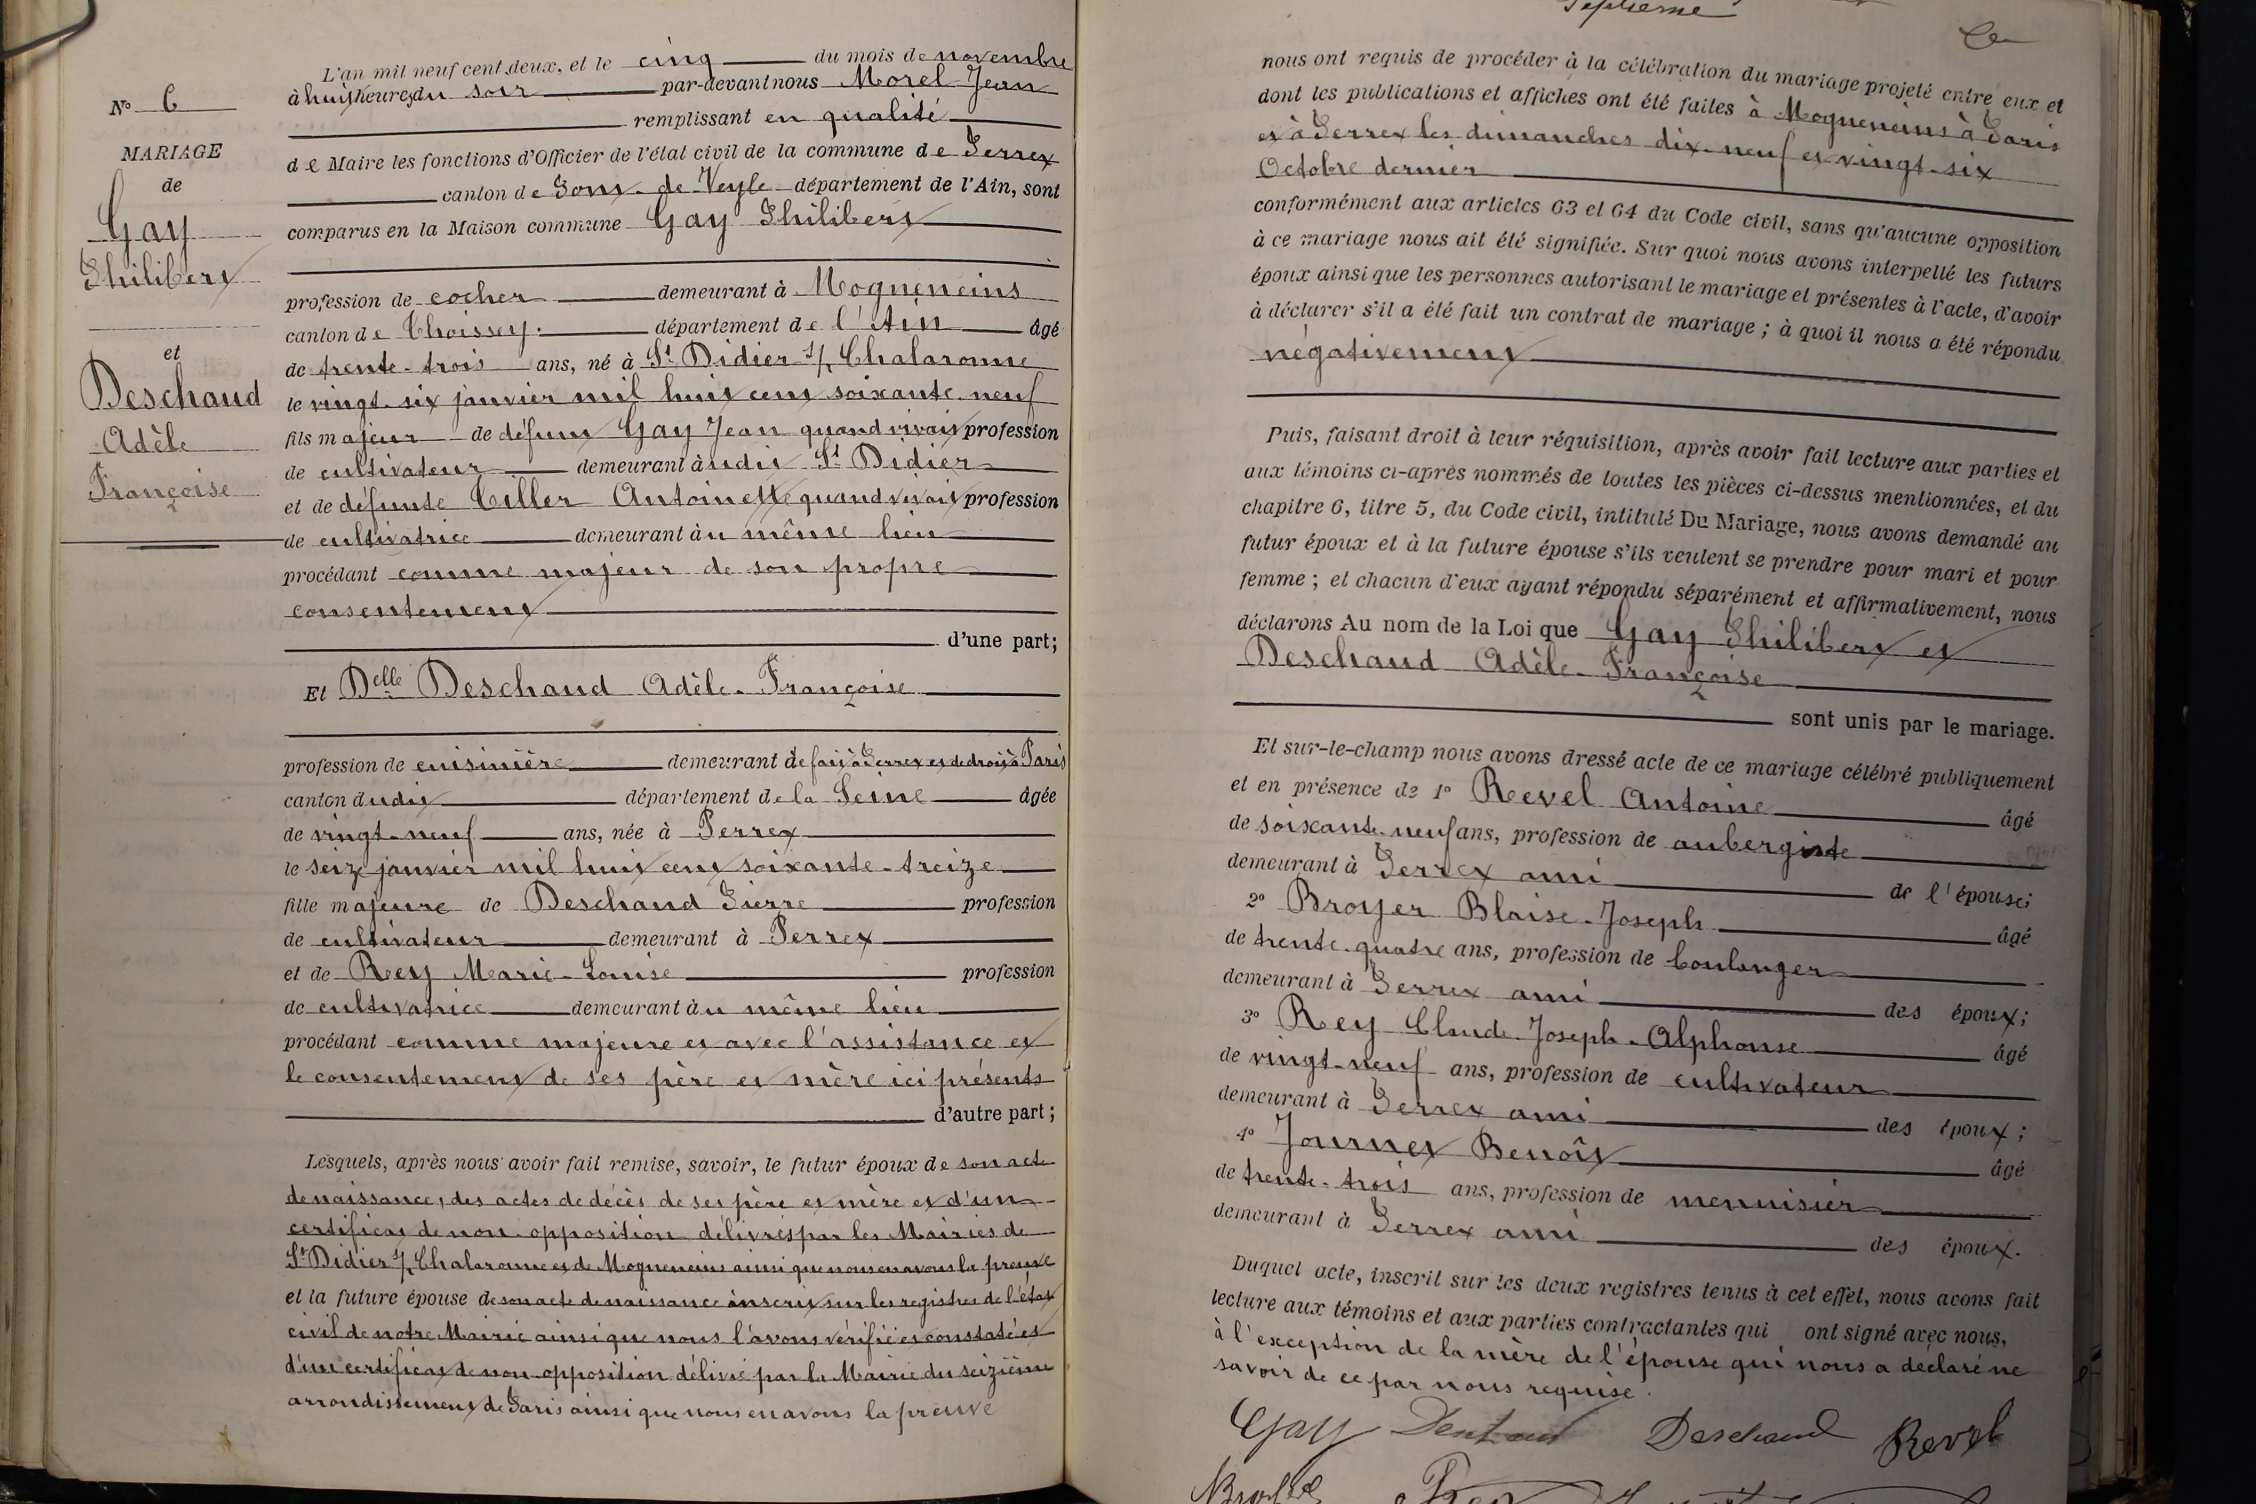 L'an mil neuf cent deux, et le cinq du mois de novembre
à huit heures du soir par-devant nous Morel Jean
remplissant en qualité
de Maire les fonctions d'Officier de l'état civil de la commune de Perrex
canton de Pont-de-Veyle département de l'Ain, sont
comparus en la Maison commune Gay Philibert
profession de cocher demeurant à Mogneneins
canton de Thoissey. département de l'Ain âgé
de trente-trois ans, né à St Didier s/ Chalaronne
le vingt-six janvier mil huit cent soixante-neuf
fils majeur de défunt Gay Jean quand vivait profession
de cultivateur demeurant à udit St Didier
et de défunte Tiller Antoinette quand vivait profession
de cultivatrice demeurant àu même lieu
procédant comme majeur de son propre
consentement
d'une part;
Et Delle Deschaud Adèle-Françoise
profession de cuisinière demeurant de fait à Perrex et de droit à Paris
canton dudit département de la Seine âgée
de vingt-neuf ans, née à Perrex
le seize janvier mil huit cent soixante-treize
fille majeure de Deschaud Pierre profession
de cultivateur demeurant à Perrex
et de Rey Marie-Louise profession
de cultivatrice demeurant àu même lieu
procédant comme majeure et avec l'assistance et
le consentement de ses père et mère ici présents
d'autre part;
Lesquels, après nous avoir fait remise, savoir, le futur époux de son acte
de naissance, des actes de décès de ses père et mère et d'un
certificat de non opposition délivrés par les Mairies de
St Didier s/ Chalaronne et de Mogneneins ainsi que nous en avons la preuve
et la future épouse de son acte de naissance inscrit sur les registres de l'état
civil de notre Mairie ainsi que nous l'avons vérifié et constaté et
d'un certificat de non opposition délivré par la Mairie du seizième
arrondissement de Paris ainsi que nous en avons la preuve
No 6
MARIAGE
de
Gay
Philibert
et
Deschaud
Adèle
Françoise
Septième
nous ont requis de procéder à la célébration du mariage projeté entre eux et
dont les publications et affiches ont été faites à Mogneneins à Paris
et à Perrex les dimanches dix-neuf et vingt-six
Octobre dernier
conformément aux articles 63 et 64 du Code civil, sans qu'aucune opposition
à ce mariage nous ait été signifiée. Sur quoi nous avons interpellé les futurs
époux ainsi que les personnes autorisant le mariage et présentes à l'acte, d'avoir
à déclarer s'il a été fait un contrat de mariage ; à quoi il nous a été répondu
négativement
Puis, faisant droit à leur réquisition, après avoir fait lecture aux parties et
aux témoins ci-après nommés de toutes les pièces ci-dessus mentionnées, et du
chapitre 6, titre 5, du Code civil, intitulé Du Mariage, nous avons demandé au
futur époux et à la future épouse s'ils veulent se prendre pour mari et pour
femme ; et chacun d'eux ayant répondu séparément et affirmativement, nous
déclarons Au nom de la Loi que Gay Philibert et
Deschaud Adèle-Françoise
sont unis par le mariage.
Et sur-le-champ nous avons dressé acte de ce mariage célébré publiquement
et en présence de 1o Revel Antoine âgé
de soixante-neuf ans, profession de aubergiste
demeurant à Perrex ami de l'épouse;
2o Broyer Blaise-Joseph âgé
de trente-quatre ans, profession de boulanger
demeurant à Perrex ami des époux;
3o Rey Claude-Joseph-Alphonse âgé
de vingt-neuf ans, profession de cultivateur
demeurant à Perrex ami des époux;
4o Journet Benoît âgé
de trente-trois ans, profession de menuisier
demeurant à Perrex ami des époux.
Duquel acte, inscrit sur les deux registres tenus à cet effet, nous avons fait
lecture aux témoins et aux parties contractantes qui ont signé avec nous,
à l'exception de la mère de l'épouse qui nous a déclaré ne
savoir de ce par nous requise.
Gay Deschaud Revel
Rey